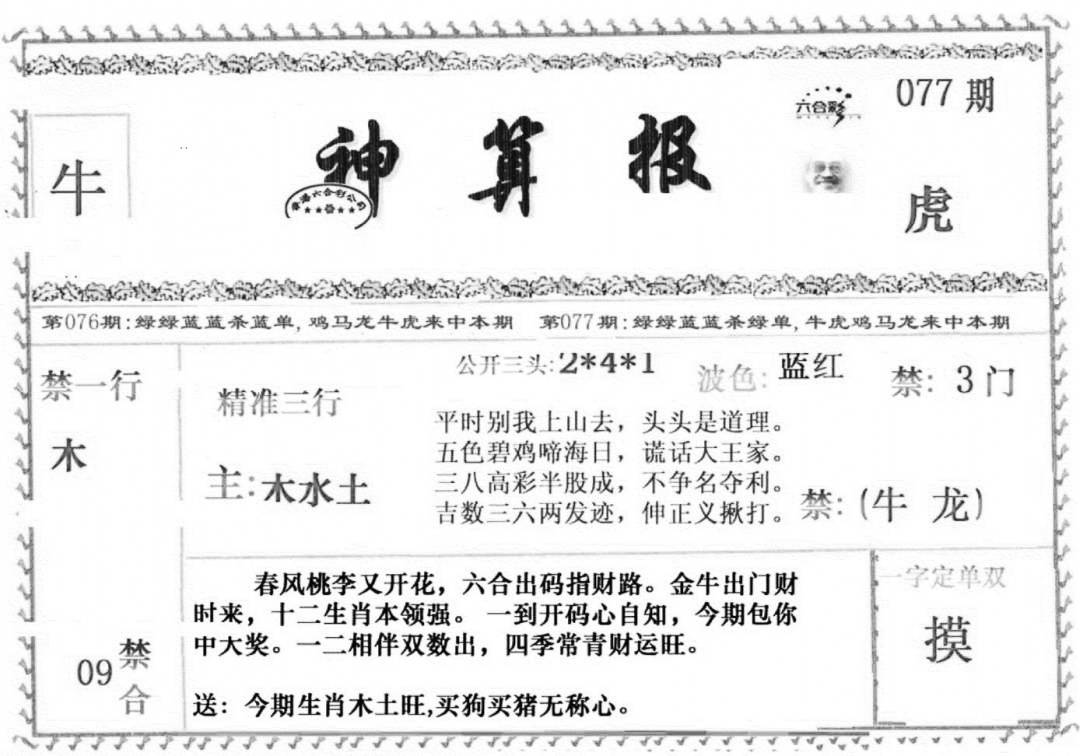 077期
六合彩
牛
神算报
香港六合彩公司
虎
第076期:绿绿蓝蓝杀蓝单,鸡马龙牛虎来中本期 第077期:绿绿蓝蓝杀绿单,牛虎鸡马龙来中本期
禁一行
木
精准三行
主:木水土
公开三头:2*4*1
波色:蓝红
禁:3门
平时别我上山去，头头是道理。
五色碧鸡啼海日，谎话大王家。
三八高彩半股成，不争名夺利。
吉数三六两发迹，伸正义揪打。
禁:(牛 龙)
春风桃李又开花，六合出码指财路。金牛出门财
时来，十二生肖本领强。一到开码心自知，今期包你
中大奖。一二相伴双数出，四季常青财运旺。
送：今期生肖木土旺,买狗买猪无称心。
09禁合
一字定单双
摸